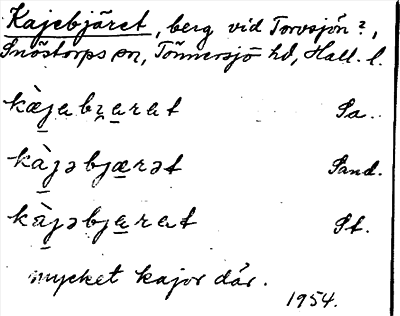 Kajebjäret, berg vid Torvsjön?,
Snöstorps sn, Tönnersjö hd, Hall. l.
kæjabʒarat Sa..
kàjəbjærət Sand.
kàjəbjarat St.
mycket kajor där.
1954.